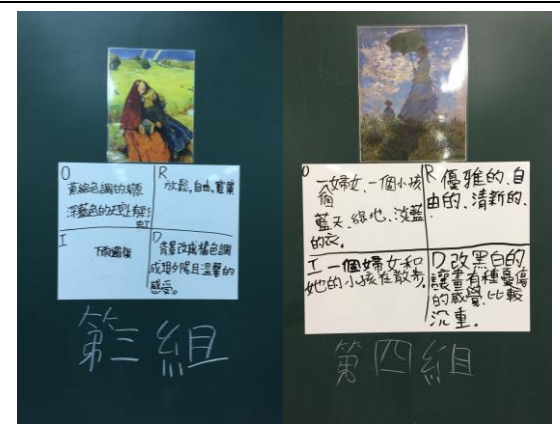 O
黃綠色調的草原
深藍色的天空有彩
虹
R
放鬆,自由,寬廣
I
下雨過後
D
背景改成橘色調
成想夕陽且溫馨的
感受。
第三組
O
一婦女、一個小孩
傘
藍天、綠地、淡藍
的衣。
R 優雅的、自
由的、清新的、
I 一個婦女和
她的小孩在散步。
D 改黑白的,
讓畫有種憂傷
的感覺,比較
沉重。
第四組